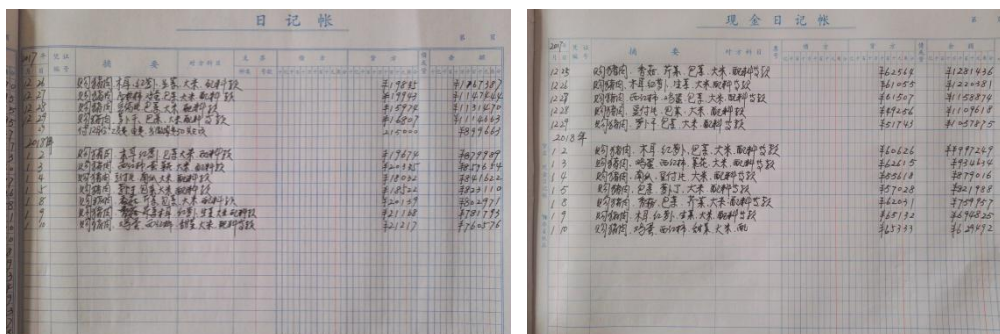 日记帐
第 页
2017年 凭证编号 摘要 对方科目 支票 借方 贷方 余额
月 日 种类 号数
12 26 购猪肉 木耳 红萝卜 生菜 大米 配料等款 ¥19845
12 27 购猪肉 西红柿 鸡蛋 包菜 大米 配料等款 ¥19943 ¥1147444
12 28 包菜 大米 配料等款 ¥15974 ¥1131470
12 29 购猪肉 萝卜干 包菜 大米 配料等款 ¥16807 ¥1114663
215000 ¥899663
2018年
1 2 购猪肉 木耳 红萝卜 包菜 大米 配料等款 ¥19674 ¥879989
1 3 购猪肉 西红柿 鸡蛋 大米 配料等款
1 4 购猪肉 南瓜 大米 配料等款 ¥841622
1 5 购猪肉 包菜 大米 配料等款 ¥18522 ¥823110
1 8 购猪肉 香菇 芹菜 包菜 大米 配料等款 ¥20139 ¥802971
1 9 购猪肉 木耳 红萝卜 生菜 大米 配料等款 ¥21168 ¥781793
1 10 购猪肉 鸡蛋 西红柿 甜菜 大米 配料等款 ¥21217 ¥760576
现金日记帐
第 页
2017年 凭证编号 摘要 对方科目 借方 贷方 余额
月 日
12 25 购猪肉、香菇、芹菜、包菜、大米、配料等款 ¥62564 ¥1281436
12 26 购猪肉、木耳、红萝卜、生菜、大米、配料等款 ¥61055 ¥1220381
12 27 购猪肉、西红柿、鸡蛋、包菜、大米、配料等款 ¥61507 ¥1158874
12 28 购猪肉、豆付丸、包菜、大米、配料等款 ¥49256 ¥1109618
12 29 购猪肉、萝卜干、包菜、大米、配料等款 ¥51743 ¥1057875
2018年
1 2 购猪肉、木耳、红萝卜、包菜、大米、配料等款 ¥60626 ¥997249
1 3 购猪肉、鸡蛋、西红柿、大米、配料等款 ¥62615 ¥934634
1 4 购猪肉、南瓜、豆付丸、大米、配料等款 ¥55618 ¥879016
1 5 购猪肉、包菜、萝卜丁、大米、配料等款 ¥57028 ¥821988
1 8 购猪肉、香菇、包菜、芹菜、大米、配料等款 ¥62031 ¥759957
1 9 购猪肉、木耳、红萝卜、生菜、大米、配料等款 ¥65132 ¥694825
1 10 购猪肉、鸡蛋、西红柿、甜菜、大米、配 ¥65333 ¥629492